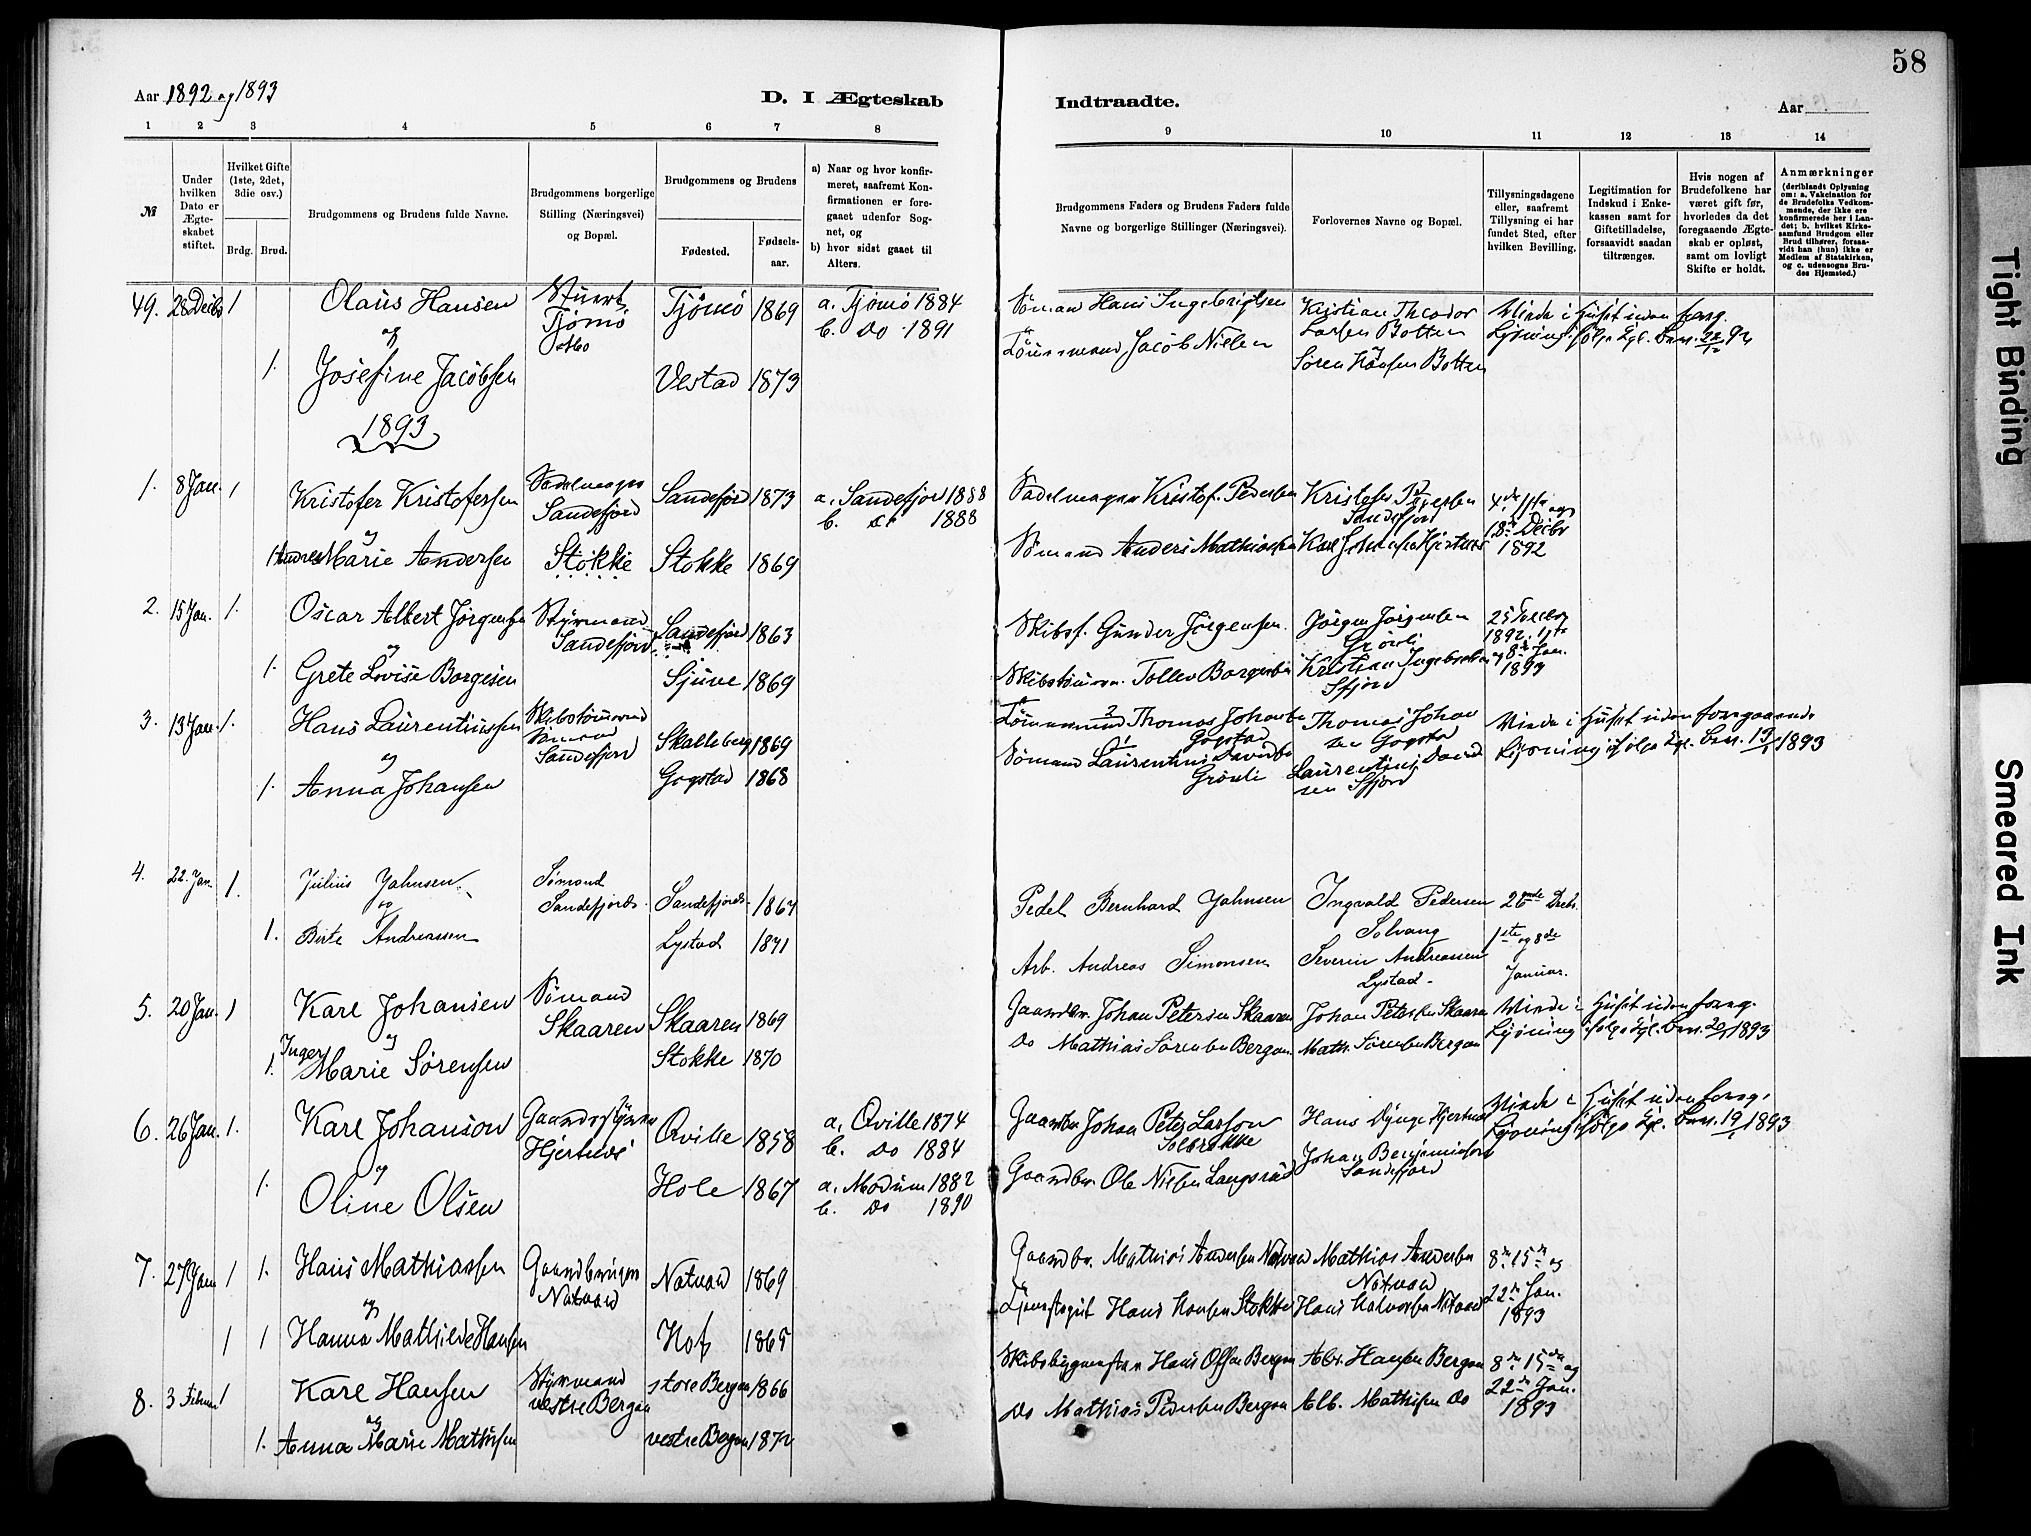 58
Aar 1892 og 1893
D. I Ægteskab
Indtraadte.
Aar
1 2 3 4 5 6 7 8 9 10 11 12 13 14
№
Under hvilken Dato er Ægte-skabet stiftet.
Hvilket Gifte (1ste, 2det, 3die osv.)
Brdg. Brud.
Brudgommens og Brudens fulde Navne.
Brudgommens borgerlige Stilling (Næringsvei) og Bopæl.
Brudgommens og Brudens
Fødested.
Fødsels-aar.
a) Naar og hvor konfir-meret, saafremt Kon-firmationen er fore-gaaet udenfor Sog-net, og
b) hvor sidst gaaet til Alters.
Brudgommens Faders og Brudens Faders fulde Navne og borgerlige Stillinger (Næringsvei).
Forlovernes Navne og Bopæl.
Tillysningsdagene eller, saafremt Tillysning ei har fundet Sted, efter hvilken Bevilling.
Legitimation for Indskud i Enke-kassen samt for Giftetilladelse, forsaavidt saadan tiltrænges.
Hvis nogen af Brudefolkene har været gift før, hvorledes da det foregaaende Ægte-skab er opløst, samt om lovligt Skifte er holdt.
Anmærkninger
(deriblandt Oplysning om: a. Vakcination for de Brudefolks Vedkom-mende, der ikke ere konfirmerede her i Lan-det; b. hvilket Kirke-samfund Brudgom eller Brud tilhører, forsaa-vidt han (hun) ikke er Medlem af Statskirken, og c. udensogns Bru-des Hjemsted.)
49. 28 Decbr 1 Olaus Hansen Stuert Tjømø Tjømø 1869 a. Tjømø 1884
b. Do 1891
Sømand Hans Ingebrigtsen Kristian Theodor Larsen Botten
og
1. Josefine Jacobsen Vestad 1873
Tømmermand Jacob Nielsen Søren Hansen Botten
1893
1. 8 Jan. 1 Kristofer Kristofersen Sadelmager Sandefjord Sandefjord 1873 a. Sandefjord 1888
b. do 1888
Sadelmager Kristof. Pedersen
Sandefjord
og
Marie Andersen Stokke Stokke 1869
Sømand Anders Mathiassen
18de Decbr 1892
2. 15 Jan. 1. Oscar Albert Jørgensen Styrmand Sandefjord Sandefjord 1863
Skibsf. Gunder Jørgensen Jørgen Jørgensen
1892. 1ste og 8de Jan. 1893
og
1. Grete Lovise Borgesen Sjuve 1869
Tollev Borgersen Kristian Sfjord
3. 13 Jan. 1. Hans Laurentiussen Sømand Sandefjord Skalleberg 1869
Tømmermand Thomas Johansen Gogstad Thomas Johansen Gogstad
og
1. Anna Johansen Gogstad 1868
Sømand Laurentius Davidsen Laurentius Davidsen Sfjord
4. 22. Jan. 1. Julius Jahnsen Sømand Sandefjord. Sandefjord. 1867
Pedel Bernhard Jahnsen Ingvald Pedersen Solvang 26nde Decb.
og
1. Birte Andreassen Lystad 1871
Arb. Andreas Simonsen Severin Andreassen Lystad 1ste og 8de Januar.
5. 20 Jan. 1 Karl Johansen Sømand Skaaren Skaaren 1869
Gaardbr. Johan Petersen Skaaren Johan Petersen Skaaren
og
1. Inger Marie Sørensen Stokke 1870
Do Mathias Sørensen Bergan Math. Sørensen Bergan
6. 26 Jan. 1. Karl Johanson Hjertnes Qville 1858 a. Qville 1874
b. Do 1884
Gaardbr. Johan Peter Larson Hans Dynge Hjertnes
og
1. Oline Olsen Hole 1867 a. Modum 1882
b. Do 1890
Gaardbr. Ole Nielsen Johan Benjaminsen Sandefjord
7. 27 Jan. 1 1. Hans Mathiassen Gaardbruger Natvad 1869
Gaardbr. Mathias Andersen Mathias Andersen 8de 15de og
og
1 1 Hanna Mathilde Hansen Hof 1865
Hans Hansen Stokke Hans Halvorsen 22de Jan. 1893
8. 3 Februar 1 Karl Hansen Styrmand vestre Bergan store Bergan 1866
Hans Olsen Bergan Hansen Bergan 8de 15de og
og
1. Anna Marie Mathisen vestre Bergan 1872
Do Mathias Pedersen Bergan Alb. Mathisen Do 22de Jan. 1893
Tight Binding
Smeared Ink